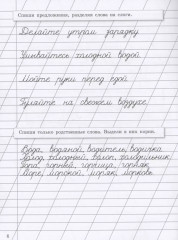 Спиши предложения, разделяя слова на слоги.
Делайте утром зарядку.
Умывайтесь холодной водой.
Мойте руки перед едой.
Гуляйте на свежем воздухе.
Спиши только родственные слова. Выдели в них корень.
Вода, водяной, водитель, водичка.
Холод, холодный, холоп, холодильник.
Гора, горный, горница, горняк.
Море, морской, моряк, морковь.